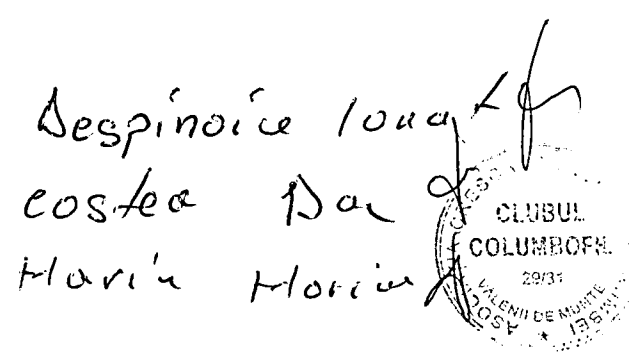 Despinoiu Ionuț
Costea Dan
Marin Marius
CLUBUL
COLUMBOFIL
29/31
VALENII DE MUNTE